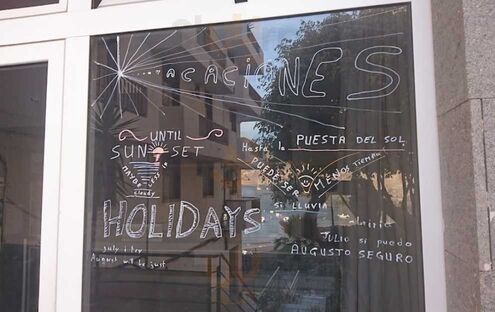 VACACIONES
UNTIL
SUNSET
MAYBE LESS IF
cloudy
HOLIDAYS
july i try
August
just
Hasta la PUESTA DEL SOL
PUEDE SER MENOS TIEMPO
si LLUVIA
JULIO si puedo
AUGUSTO SEGURO